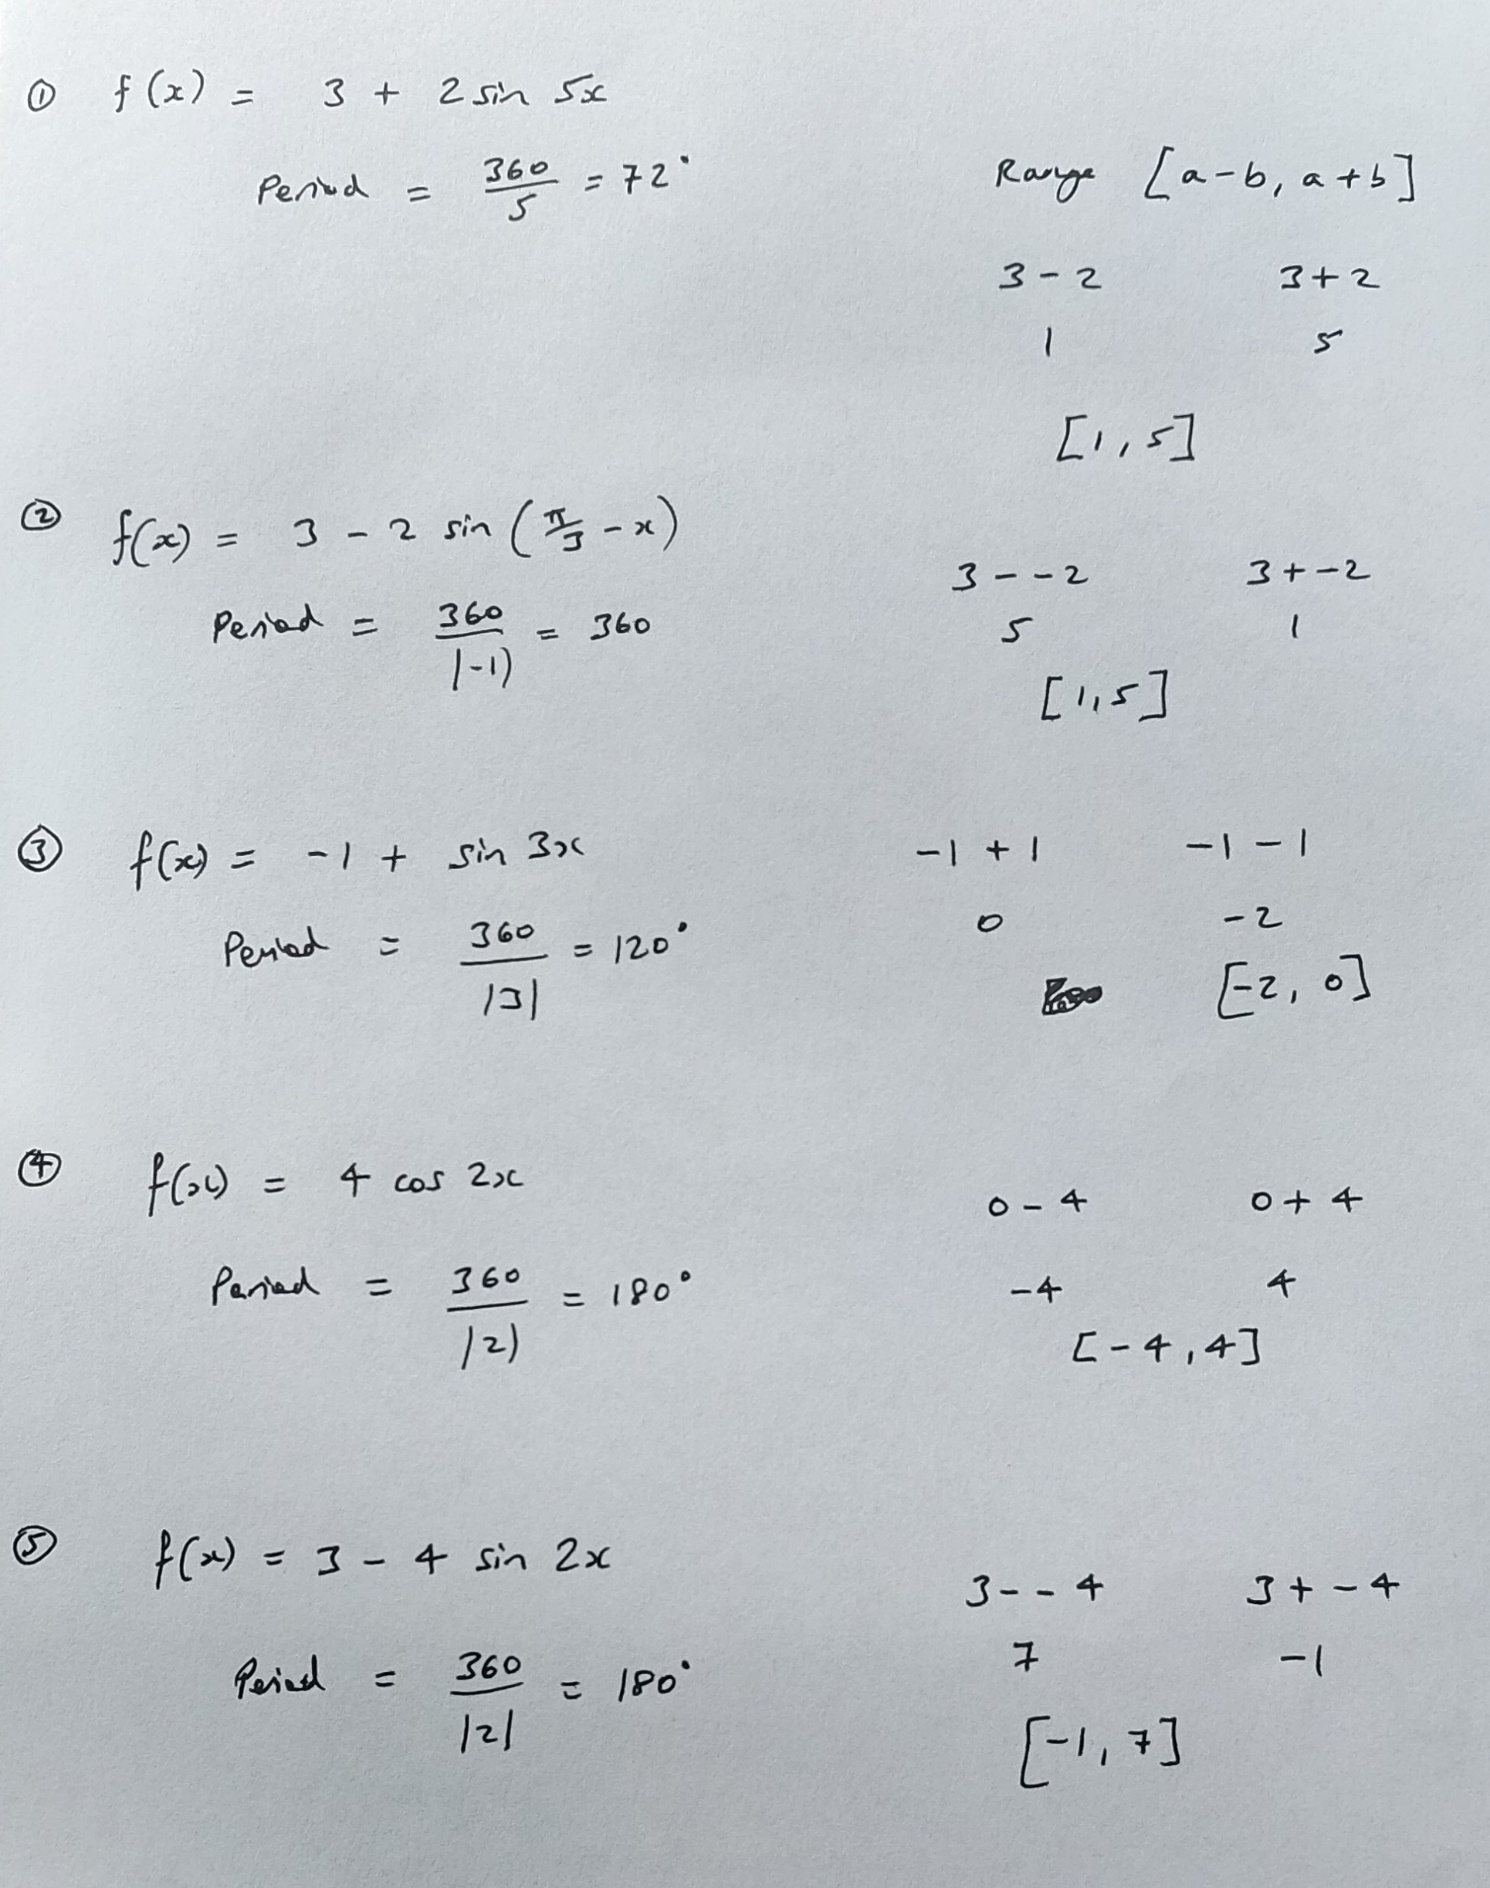 ① f(x) = 3 + 2 sin 5x
Period = 360/5 = 72°
Range [a-b, a+b]
3-2 3+2
1 5
[1,5]
② f(x) = 3 - 2 sin (π/3 - x)
Period = 360/|-1| = 360
3--2 3+-2
5 1
[1,5]
③ f(x) = -1 + sin 3x
Period = 360/|3| = 120°
-1+1 -1-1
0 -2
[-2, 0]
④ f(x) = 4 cos 2x
Period = 360/|2| = 180°
0-4 0+4
-4 4
[-4,4]
⑤ f(x) = 3 - 4 sin 2x
Period = 360/|2| = 180°
3--4 3+-4
7 -1
[-1, 7]